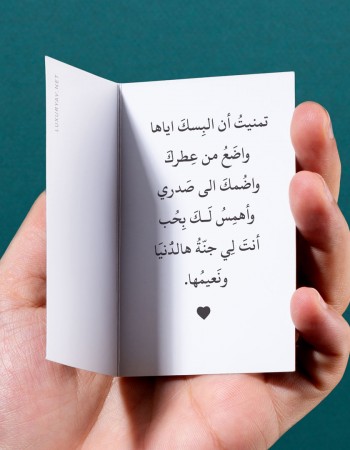 LUXURYAY.NET
تمنيتُ أن البِسكَ اياها
واضَعُ من عِطركَ
واضُمكَ الى صَدري
وأهمِسُ لَــكَ بِحُب
أنتَ لِي جنّةُ هالدُنيَا
ونَعيمُها.